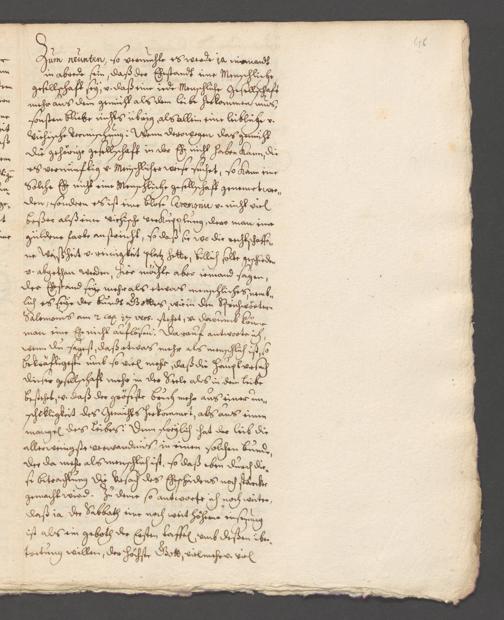 Zum neunten, so vermuhte es werde ja niemandt
in abrede sein, daß der Ehestandt eine Menschliche
gesellschaft sey, v. daß eine iede Menschliche Gesellschaft
mehr aus dem gemüht als dem leibe herkommen mus,
sonsten bliebe nichts übrig als allein eine leibliche v.
viehische vermischung: Wenn derowegen das gemüht
die gehörige gesellschaft in der Eh nicht haben kan, die
es vernünftig v. Menschlicher weise suchet, so kan eine
solche Eh nicht eine Menschliche gesellschaft genennet wer-
den, sondern es ist eine blose Ceremonie v. nicht viel
besser als eine viehische verkupplung, deren man eine
güldene farbe anstreicht, so daß sie wo die rechtschaffe-
ne Weisheit v. reinigkeit platz hette, billich solte geschieden
v. abgethan werden. Hier möchte aber iemand sagen,
der Ehestand sey mehr als etwas menschliches, nemb-
lich es sey der bundt Gottes, wie in den Sprichwörtern
Salomonis am 2 cap. 17 vers. stehet, v. darumb könne
man eine Eh nicht auflösen. Darauf antworte ich,
wenn du sagest, daß etwas mehr als menschlich ist, so
bekräftigestu umb so viel mehr, daß die Haupt ursach
dieser gesellschaft mehr in der Seele als in dem leibe
bestehet, v. daß der gröseste bruch mehr aus einer un-
schickligkeit des Gemühts herkommet, als aus einem
mangel des leibes: Denn freylich hat der leib die
allerwenigste verwandnüs in einem solchen bunde,
der da mehr als menschlich ist, so daß eben durch die-
se betrachtung die Ursach des Ehscheidens noch stärcker
gemacht wird. Zu deme so antworte ich noch weiter,
daß ia der Sabbath eine noch weit höhere einsetzung
ist als ein geboth der Ersten taffel, umb dessen über-
tretung willen, der höchste Gott, vielmehr v. viel